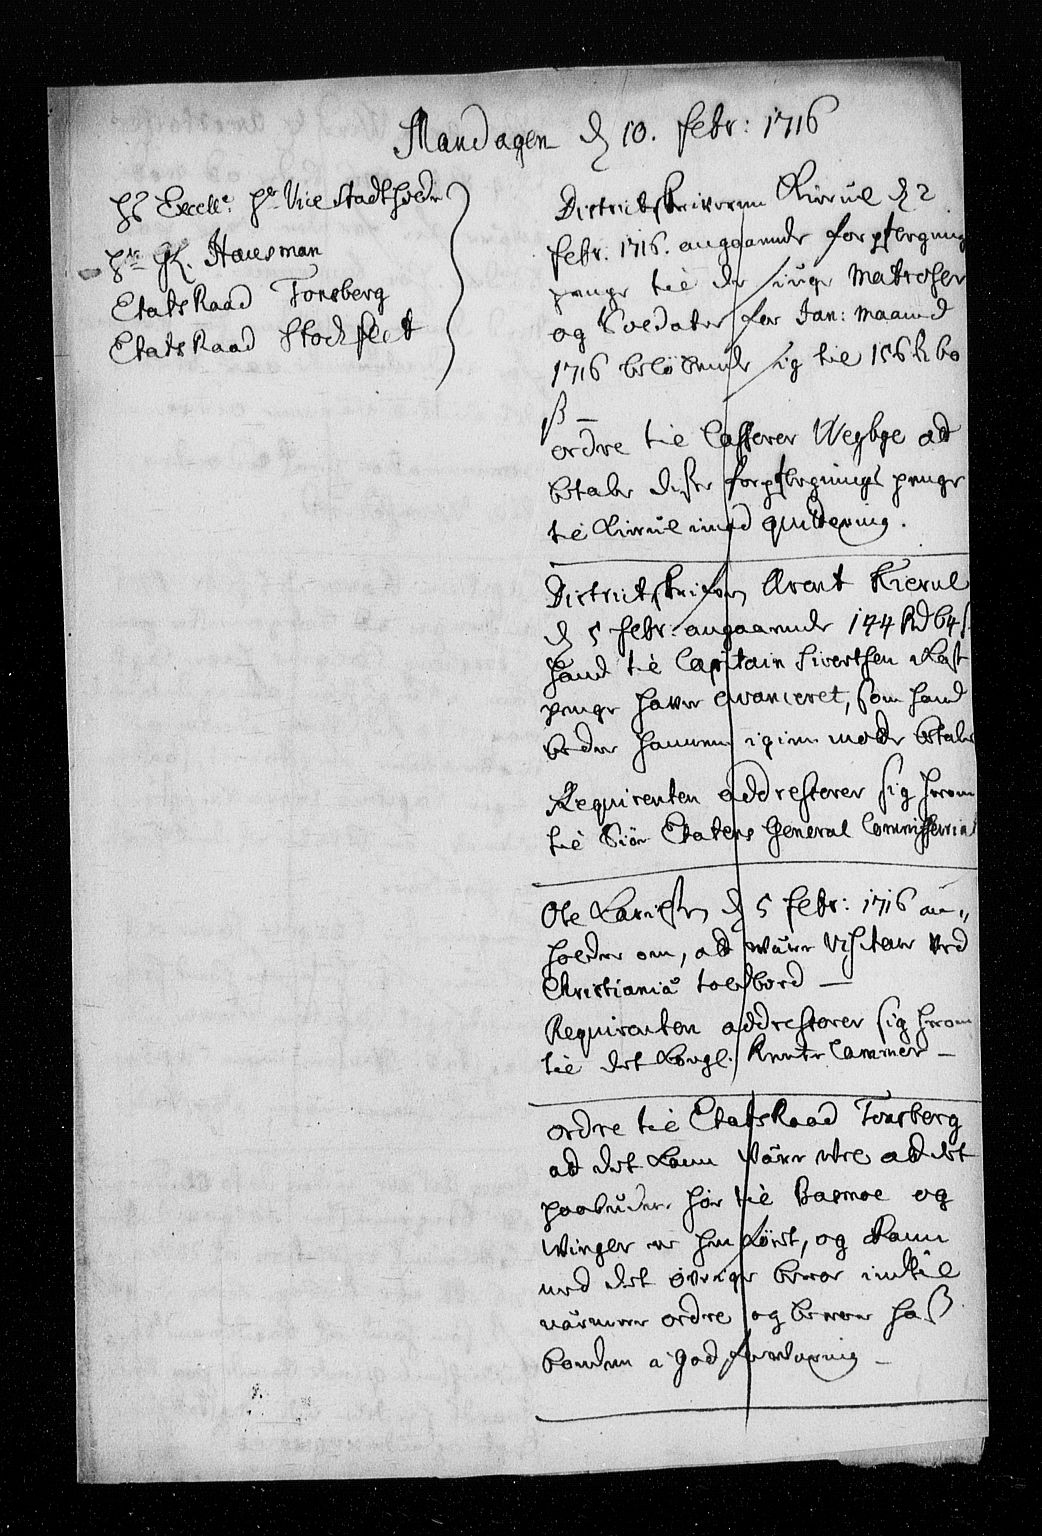 Mandagen d 10. Febr: 1716
Hs Excell: Hr Vice Stadtholdr
Hr GK. Hausman
Etats Raad Tonsberg
Etats Raad Stockflet
Districtskriveren Kierul d 2
Febr. 1716. angaaende forpflegning
penge til de siuge Matroser
og Soldater for Jan: maaned
1716 belöbende sig til 156 R 60
ß
ordre til Casserer Wegbye ad
betale disse forpflegnings penge
til Kierul imod qvittering.
Districtskrifven Arent Kierul
d 5 Febr: angaaende 144 Rd 64 s
hand til Capitain Sivertsen Kost
penge haver avanceret, som hand
beder hannem igien maatte betale
Requirenten addresserer sig herom
til Siöe Etatens General Commissaria
Ole Larissen d 5 Febr: 1716 an„
holder om, at være Visiteur ved
Christiania toldbord —
Requirenten addresserer sig herom
til det Kongl. Rente Cammer —
ordre til Etats Raad Tonsberg
ad det kand være ad det
paabudne höe til Basmoe og
Winger er hen kiört, og kand
med det övrige beroe indtil
nærmere ordre og beroer hoß
bonden i god forvaring —